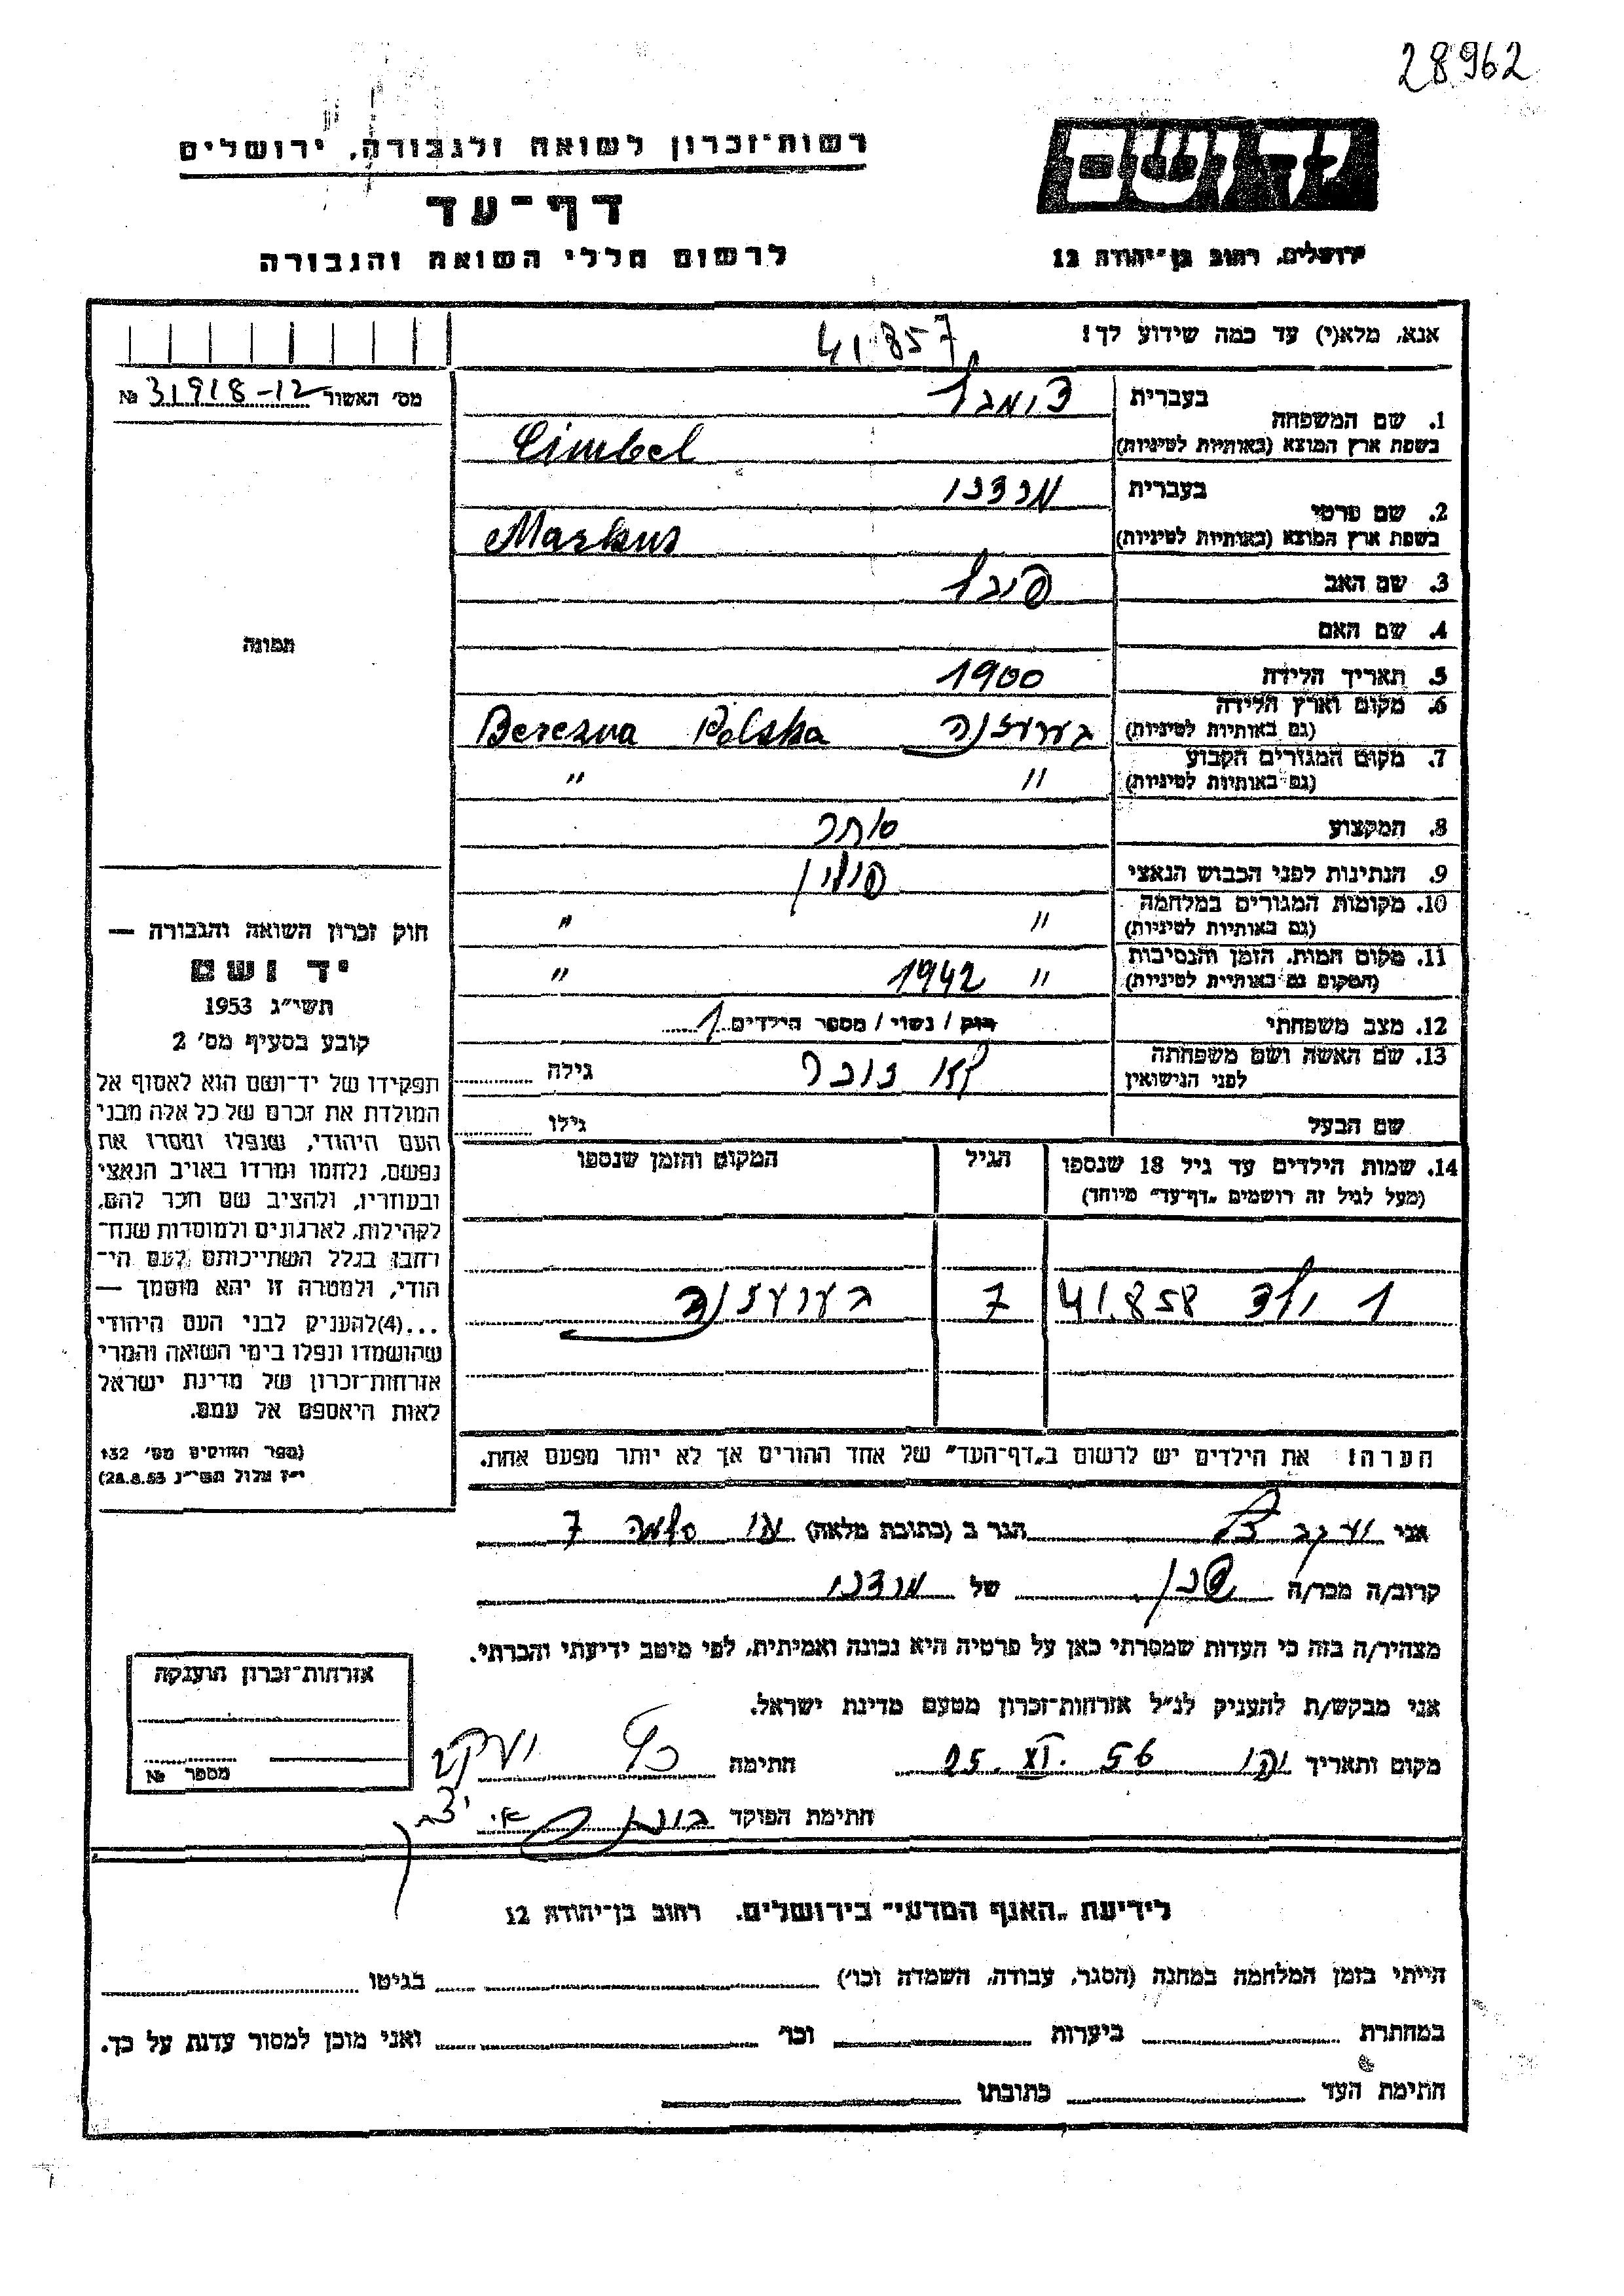 28962
רשות־זכרון לשואה ולגבורה, ירושלים
יד ושם
דף־עד
לרשום חללי השואה והגבורה
ירושלים, רחוב בן־יהודה 12
אנא, מלא(י) עד כמה שידוע לך!
41857
מס' האשור 31918-12 №
1. שם המשפחה
בעברית צימבל
בשפת ארץ המוצא (באותיות לטיניות) Cimbel
2. שם פרטי
בעברית
בשפת ארץ המוצא (באותיות לטיניות) Markus
3. שם האב
4. שם האם
5. תאריך הלידה 1900
6. מקום וארץ הלידה
(גם באותיות לטיניות) בערעזנה Berezna Polska
7. מקום המגורים הקבוע
(גם באותיות לטיניות) " "
8. המקצוע סוחר
9. הנתינות לפני הכבוש הנאצי פולין
10. מקומות המגורים במלחמה
(גם באותיות לטיניות) " "
11. מקום המות, הזמן והנסיבות
(המקום גם באותיות לטיניות) " 1942 "
12. מצב משפחתי רוק / נשוי / מספר הילדים 1
13. שם האשה ושם משפחתה
לפני הנישואין גילה
שם הבעל גילו
14. שמות הילדים עד גיל 18 שנספו
(מעל לגיל זה רושמים "דף־עד" מיוחד)
הגיל
המקום והזמן שנספו
1 ילד 41858 7 בערעזנה
הערה! את הילדים יש לרשום ב"דף־העד" של אחד ההורים אך לא יותר מפעם אחת.
תמונה
חוק זכרון השואה והגבורה —
יד ושם
תשי"ג 1953
קובע בסעיף מס' 2
תפקידו של יד־ושם הוא לאסוף אל
המולדת את זכרם של כל אלה מבני
העם היהודי, שנפלו ומסרו את
נפשם, נלחמו ומרדו באויב הנאצי
ובעוזריו, ולהציב שם וזכר להם,
לקהילות, לארגונים ולמוסדות שנח־
רבו בגלל השתייכותם לעם הי־
הודי, ולמטרה זו יהא מוסמך —
...(4) להעניק לבני העם היהודי
שהושמדו ונפלו בימי השואה והמרי
אזרחות־זכרון של מדינת ישראל
לאות היאספם אל עמם.
(ספר החוקים מס' 132
י"ז אלול תשי"ג 28.8.53)
אני יעקב הגר ב (כתובת מלאה) סלמה 7
קרוב/ה מכר/ה שכן של
מצהיר/ה בזה כי העדות שמסרתי כאן על פרטיה היא נכונה ואמיתית, לפי מיטב ידיעתי והכרתי.
אני מבקש/ת להעניק לנ"ל אזרחות־זכרון מטעם מדינת ישראל.
מקום ותאריך יפו 25. XI. 56 חתימה יעקב
חתימת הפוקד
אזרחות־זכרון הוענקה
מספר №
לידיעת "האגף המדעי" בירושלים, רחוב בן־יהודה 12
הייתי בזמן המלחמה במחנה (הסגר, עבודה, השמדה וכו') בגיטו
במחתרת ביערות וכו' ואני מוכן למסור עדות על כך.
חתימת העד כתובתו